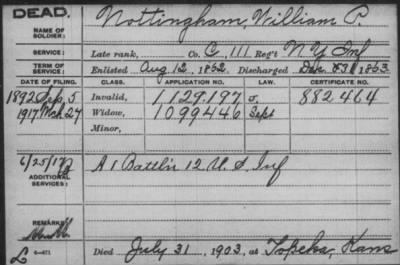 DEAD.
Nottingham, William P.
NAME OF SOLDIER:
SERVICE: Late rank, Co. C, 111 Reg't N.Y. Inf
TERM OF SERVICE: Enlisted Aug 12, 1862 Discharged Dec 1863
DATE OF FILING. CLASS. APPLICATION NO. LAW. CERTIFICATE NO.
1892 Sep. 5 Invalid, 1,129,197 J. 882464
1917 Mch 27 Widow, 1099446 Sept
Minor,
6/25/17
A 1 Battl'n 12 U.S. Inf
ADDITIONAL SERVICES:
REMARKS:
Died July 31, 1903, at Topeka, Kans